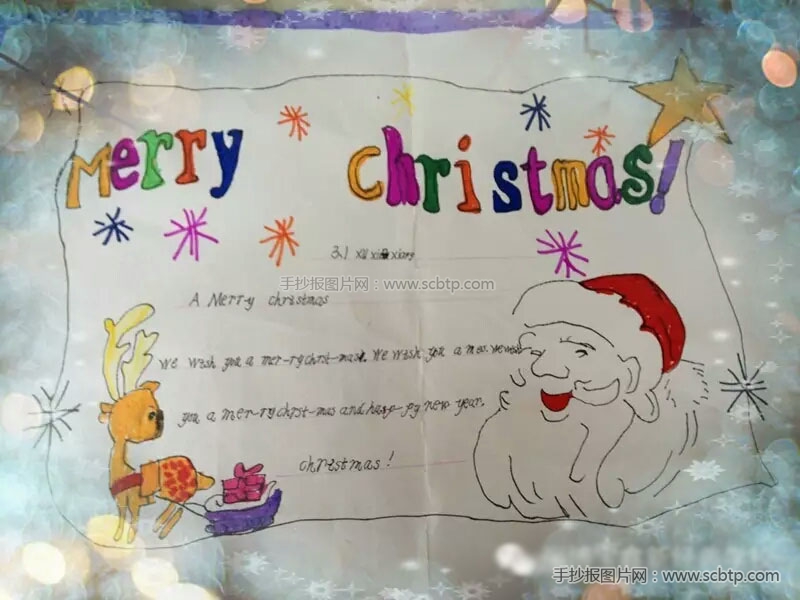 Merry christmas!
手抄报图片网：www.scbtp.com
A Merry christmas
We wash you a mer-ry christ-mas. We wash you a mer.
you a mer-ry christ-mas and happ-py new year.
christmas!
手抄报图片网：www.scbtp.com